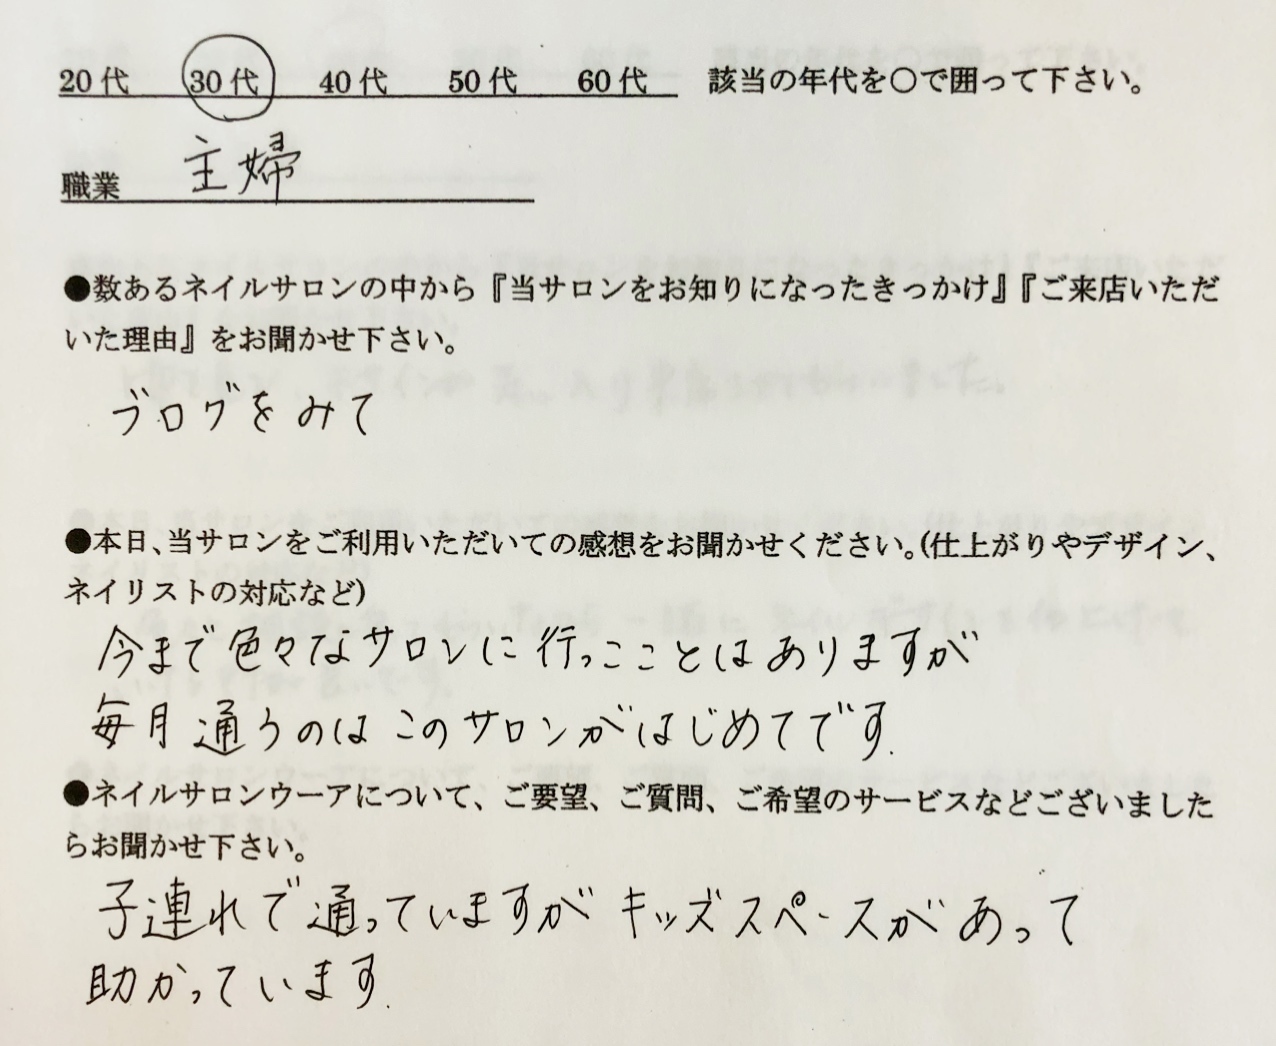 20代 30代 40代 50代 60代 該当の年代を〇で囲って下さい。
職業 主婦
●数あるネイルサロンの中から『当サロンをお知りになったきっかけ』『ご来店いただ
いた理由』をお聞かせ下さい。
ブログをみて
●本日、当サロンをご利用いただいての感想をお聞かせください。(仕上がりやデザイン、
ネイリストの対応など)
今まで色々なサロンに行っこことはありますが
毎月通うのはこのサロンがはじめてです.
●ネイルサロンウーアについて、ご要望、ご質問、ご希望のサービスなどございました
らお聞かせ下さい。
子連れで通っていますがキッズスペースがあって
助かっています.